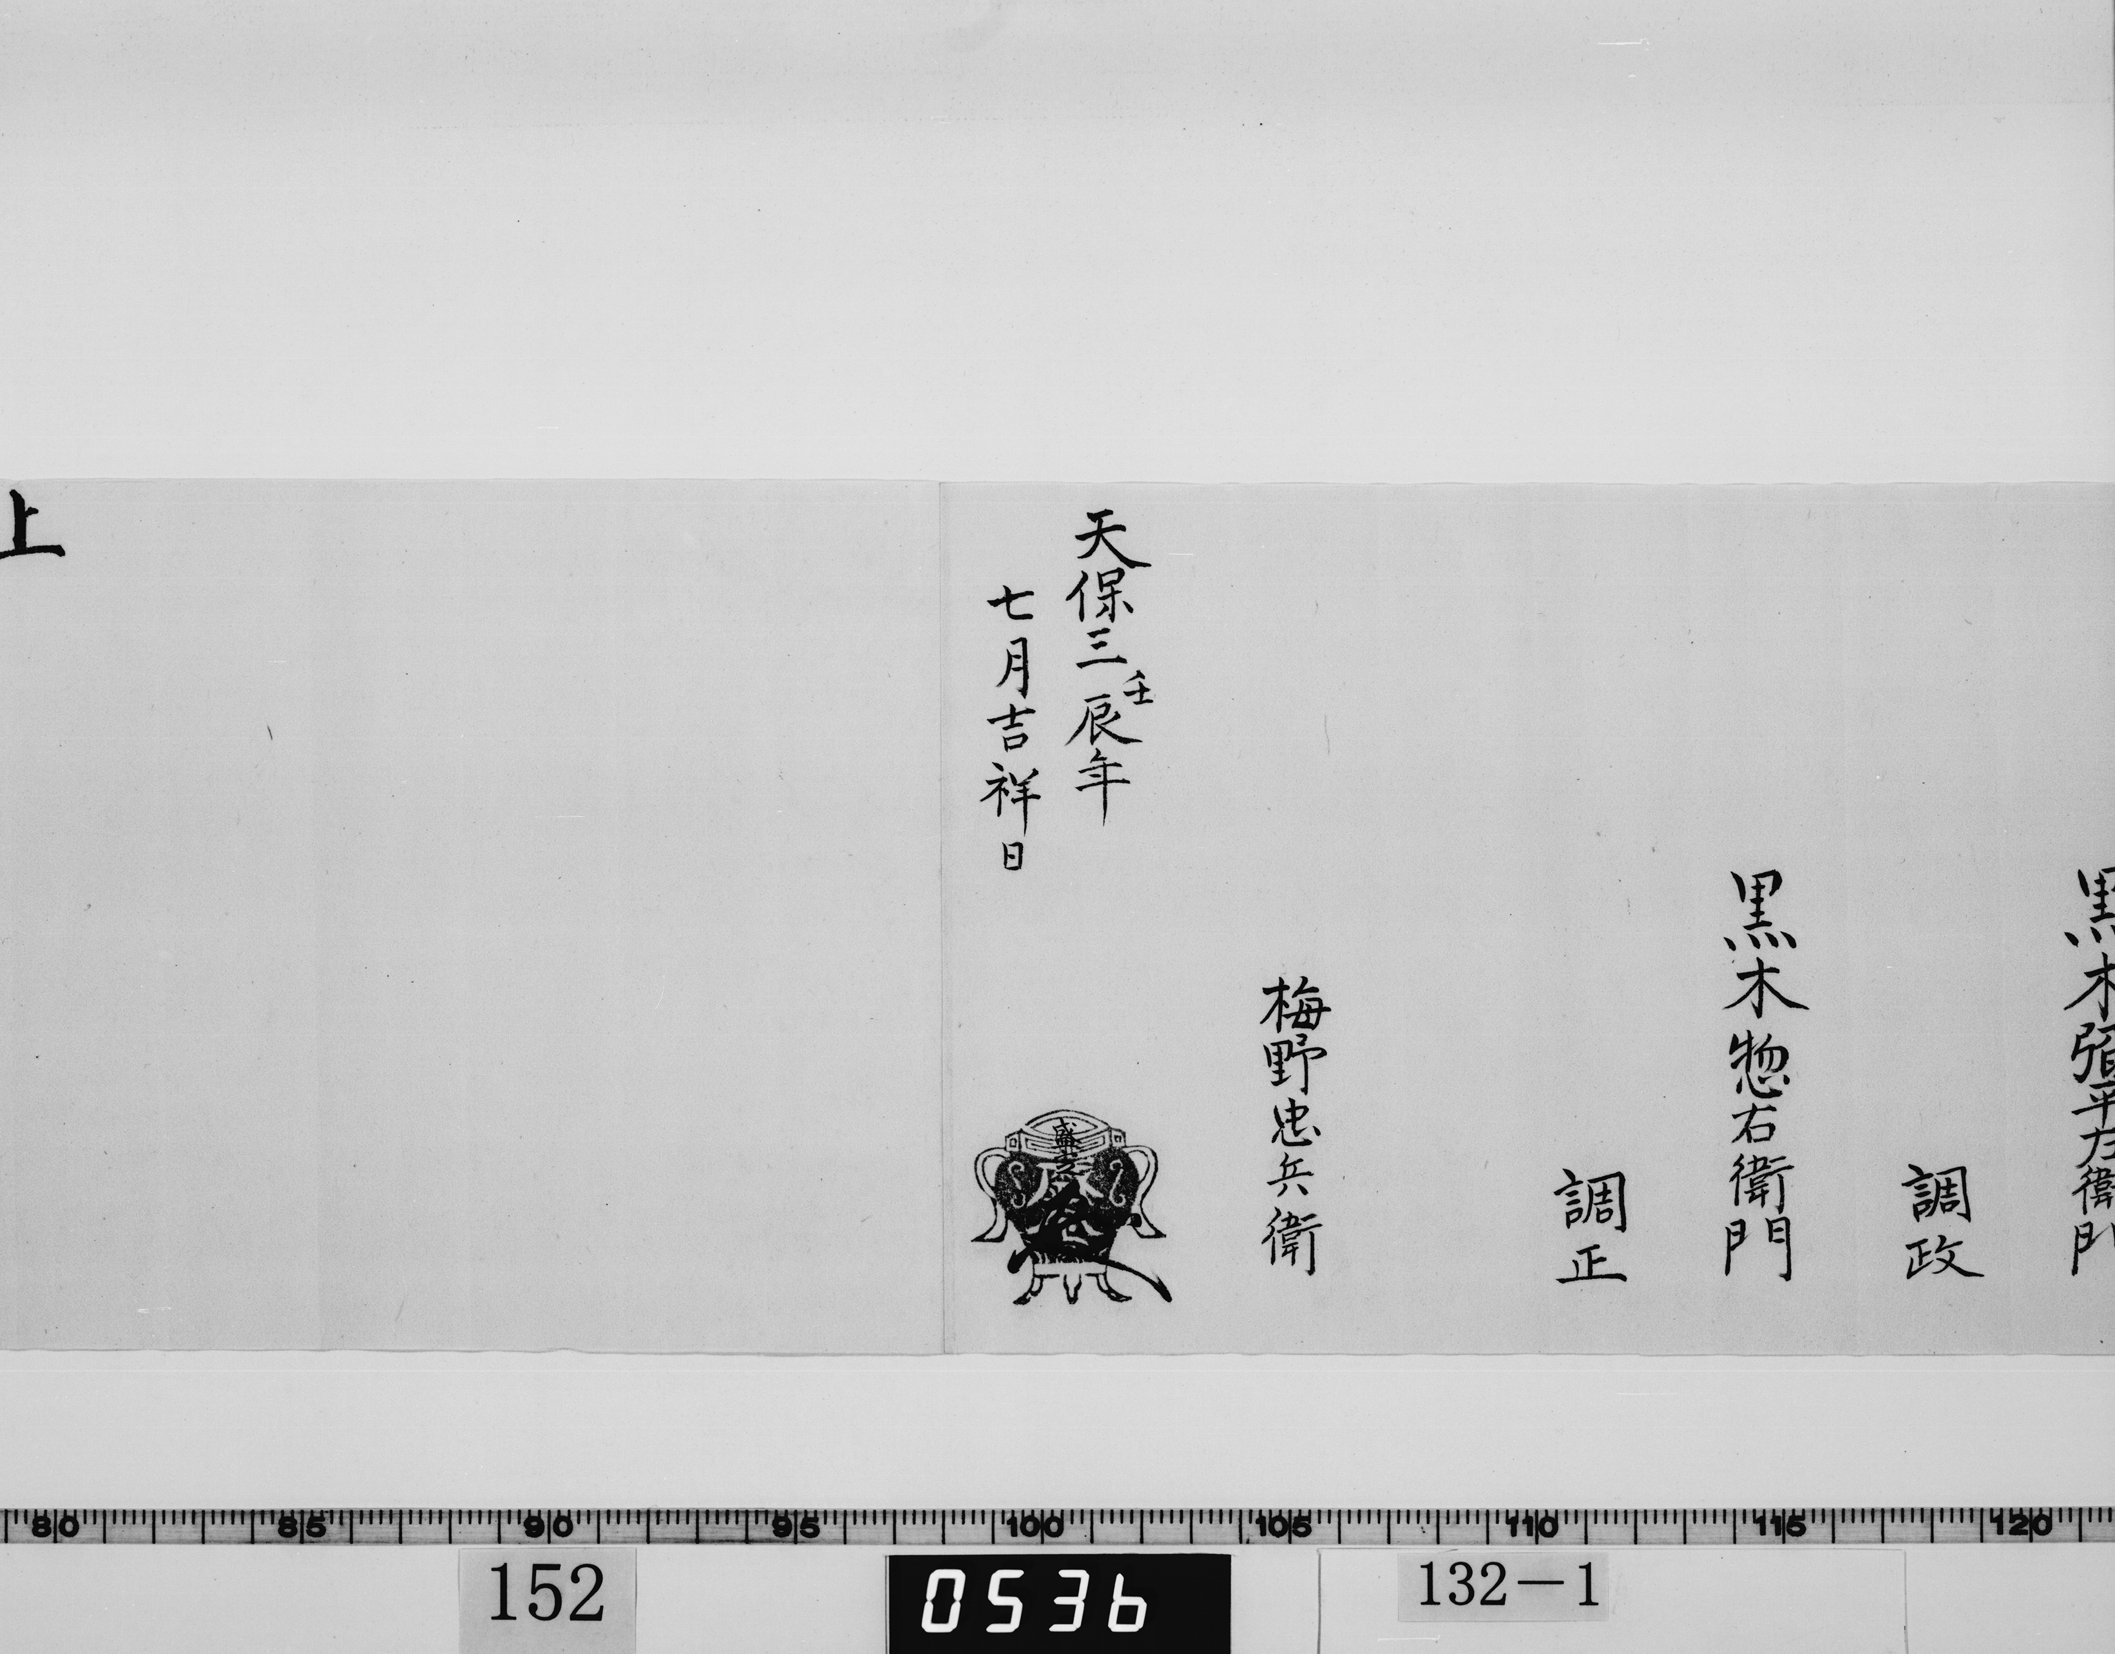 黒木弥平左衛門
調政
黒木惣右衛門
調正
梅野忠兵衛
天保三壬辰年
七月吉祥日
上
80 85 90 95 100 105 110 115 120
152
0536
132-1